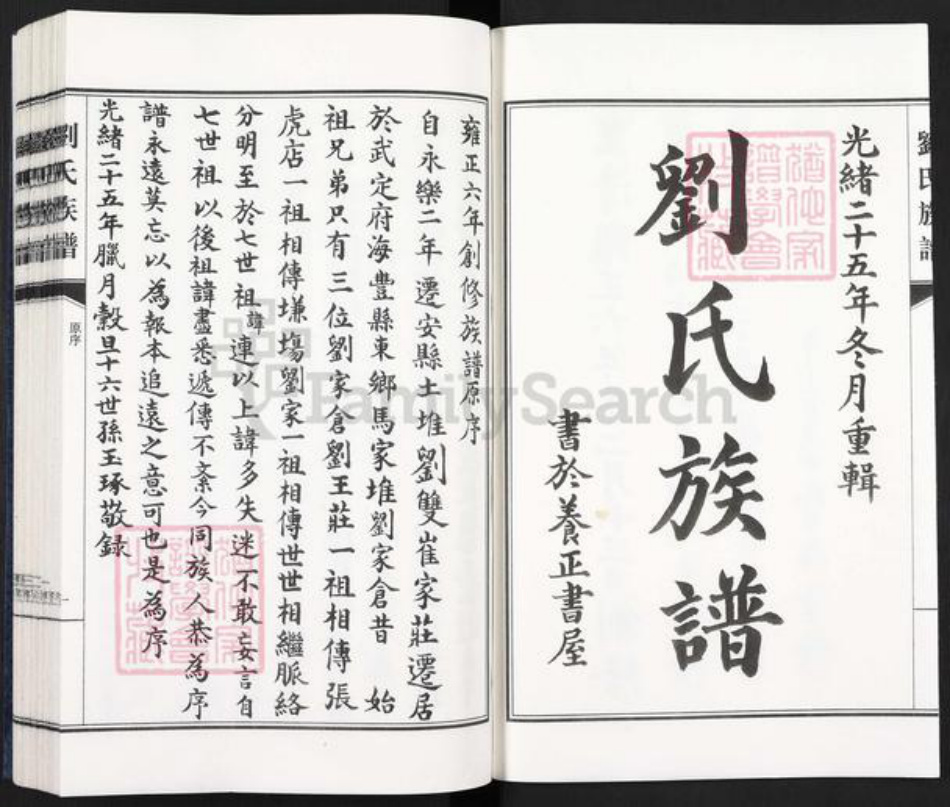 光緒二十五年冬月重輯
劉氏族譜
書於養正書屋
劉氏族譜
雍正六年創修族譜原序
自永樂二年遷安縣土堆劉雙崔家莊遷居
於武定府海豐縣東鄉馬家堆劉家倉昔始
祖兄弟只有三位劉家倉劉王莊一祖相傳張
虎店一祖相傳塲劉家一祖相傳世世相繼脈絡
分明至於七世祖諱連以上諱多失迷不敢妄言自
七世祖以後祖諱盡悉遞傳不紊今同族人恭為序
譜永遠莫忘以為報本追遠之意可也是為序
光緒二十五年臘月穀旦十六世孫玉琢敬録
劉氏族譜
原序
FamilySearch